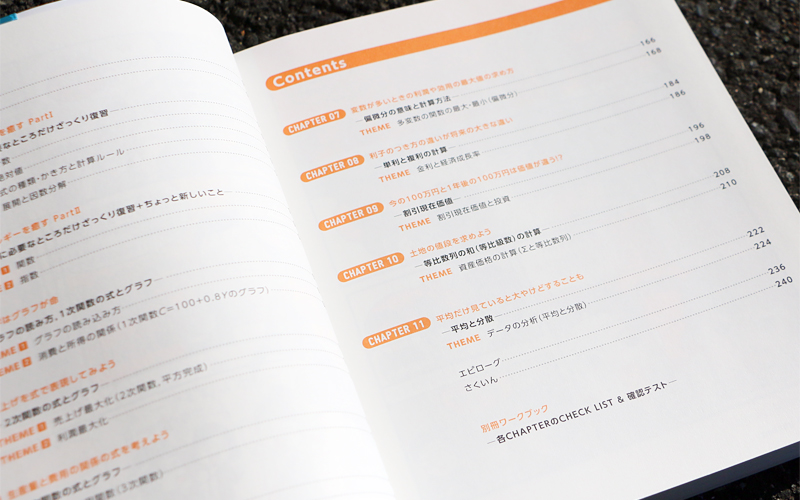 を癒す PartⅠ
なところだけざっくり復習
数
絶対値
式の種類・かき方と計算ルール
展開と因数分解
ギーを癒す PartⅡ
に必要なところだけざっくり復習+ちょっと新しいこと
1 関数
2 指数
はグラフが命
グラフの読み方，1次関数の式とグラフ
THEME 1 グラフの読み込み方
THEME 2 消費と所得の関係(1次関数C=100+0.8Yのグラフ)
上げを式で表現してみよう
2次関数の式とグラフ
THEME 1 売上げ最大化(2次関数，平方完成)
THEME 2 利潤最大化
生産量と費用の関係の式を考えよう
数の式とグラフ
関数(3次関数)
Contents
CHAPTER 07 変数が多いときの利潤や効用の最大値の求め方
—偏微分の意味と計算方法 166
THEME 多変数の関数の最大・最小(偏微分) 168
CHAPTER 08 利子のつき方の違いが将来の大きな違い
—単利と複利の計算 184
THEME 金利と経済成長率 186
CHAPTER 09 今の100万円と1年後の100万円は価値が違う!?
—割引現在価値 196
THEME 割引現在価値と投資 198
CHAPTER 10 土地の値段を求めよう
—等比数列の和(等比級数)の計算 208
THEME 資産価格の計算(Σと等比数列) 210
CHAPTER 11 平均だけ見ていると大やけどすることも
—平均と分散 222
THEME データの分析(平均と分散) 224
エピローグ 236
さくいん 240
別冊ワークブック
—各CHAPTERのCHECK LIST & 確認テスト—